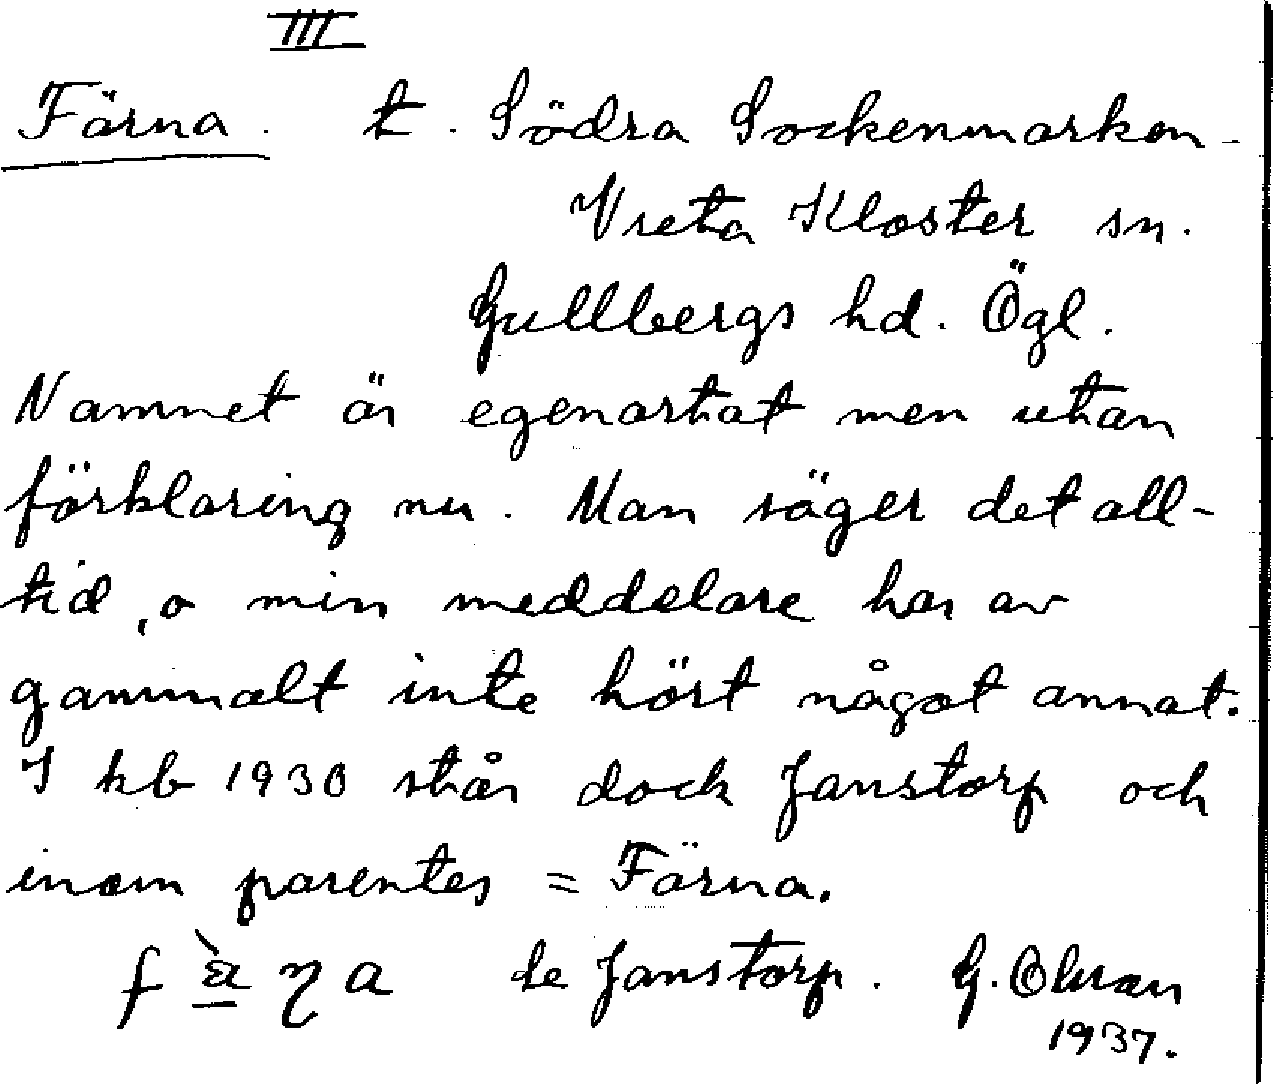 III
Färna. t. Södra Sockenmarken -
Vreta Kloster sn.
Gullbergs hd. Ögl.
Namnet är egenartat men utan
förklaring nu. Man säger det all-
tid, o min meddelare har av
gammalt inte hört något annat.
I kb 1930 står dock Janstorp och
inom parentes = Färna.
se Janstorp. G.
1937.